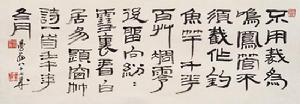 不用裁為
鳴鳳管不
須截作釣
魚竿千
百艸凋零
後留向紛
雪裏看白
居易題窗竹
詩一首